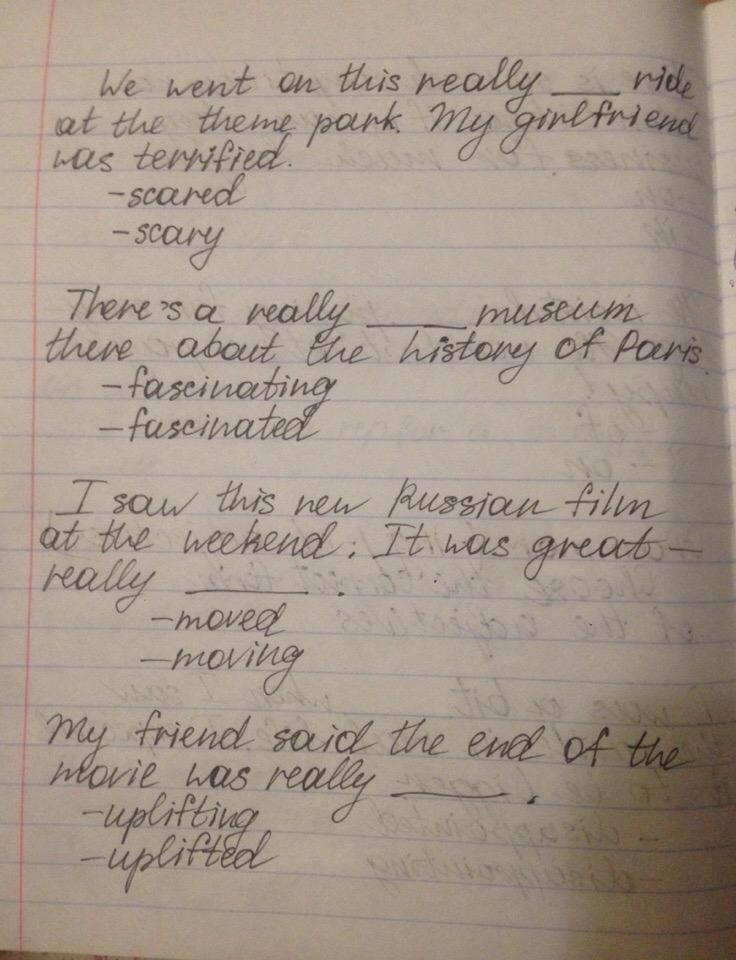 We went on this really ___ ride
at the theme park. My girlfriend
was terrified.
-scared
-scary
There's a really ____ museum
there about the history of Paris.
-fascinating
-fascinated
I saw this new Russian film
at the weekend. It was great -
really _____.
-moved
-moving
My friend said the end of the
movie was really _____.
-uplifting
-uplifted